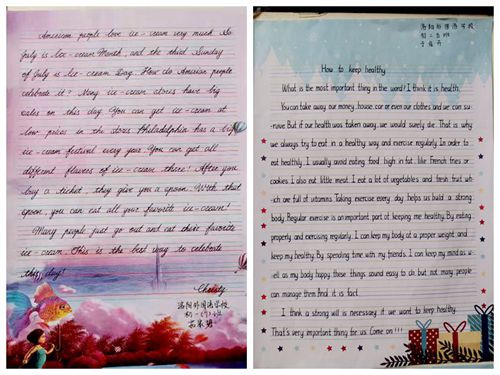 American people love ice-cream very much. So
July is Ice-cream Month, and the third Sunday
of July is Ice-cream Day. How do American people
celebrate it? Many ice-cream stores have big
sales on this day. You can get ice-cream at
low prices in the stores. Philadelphia has a big
ice-cream festival every year. You can get all
different flavors of ice-cream there! After you
buy a ticket, they give you a spoon. With that
spoon, you can eat all your favorite ice-cream!
Many people just go out and eat their favorite
ice-cream. This is the best way to celebrate
this day!
Christy
洛阳外国语学校
洛阳外国语学校
How to keep healthy
What is the most important thing in the word? I think it is health.
You can take away our money, house, car or even our clothes and we can su-
rvive. But if our health was taken away, we would surely die. That is why
we always try to eat in a healthy way and exercise regularly. In order to
eat healthily, I usually avoid eating food high in fat, like French fries or
cookies. I also eat little meat. I eat a lot of vegetables and fresh fruit wh-
ich are full of vitamins. Taking exercise every day helps us build a strong
body. Regular exercise is an important part of keeping me healthy. By eating
properly and exercising regularly, I can keep my body at a proper weight and
keep my healthy. By spending time with my friends, I can keep my mind as w-
ell as my body happy these things sound easy to do, but not many people
can manage them. And it is fact.
I think a strong will is necessary if we want to keep healthy.
That's very important thing for us. Come on!!!